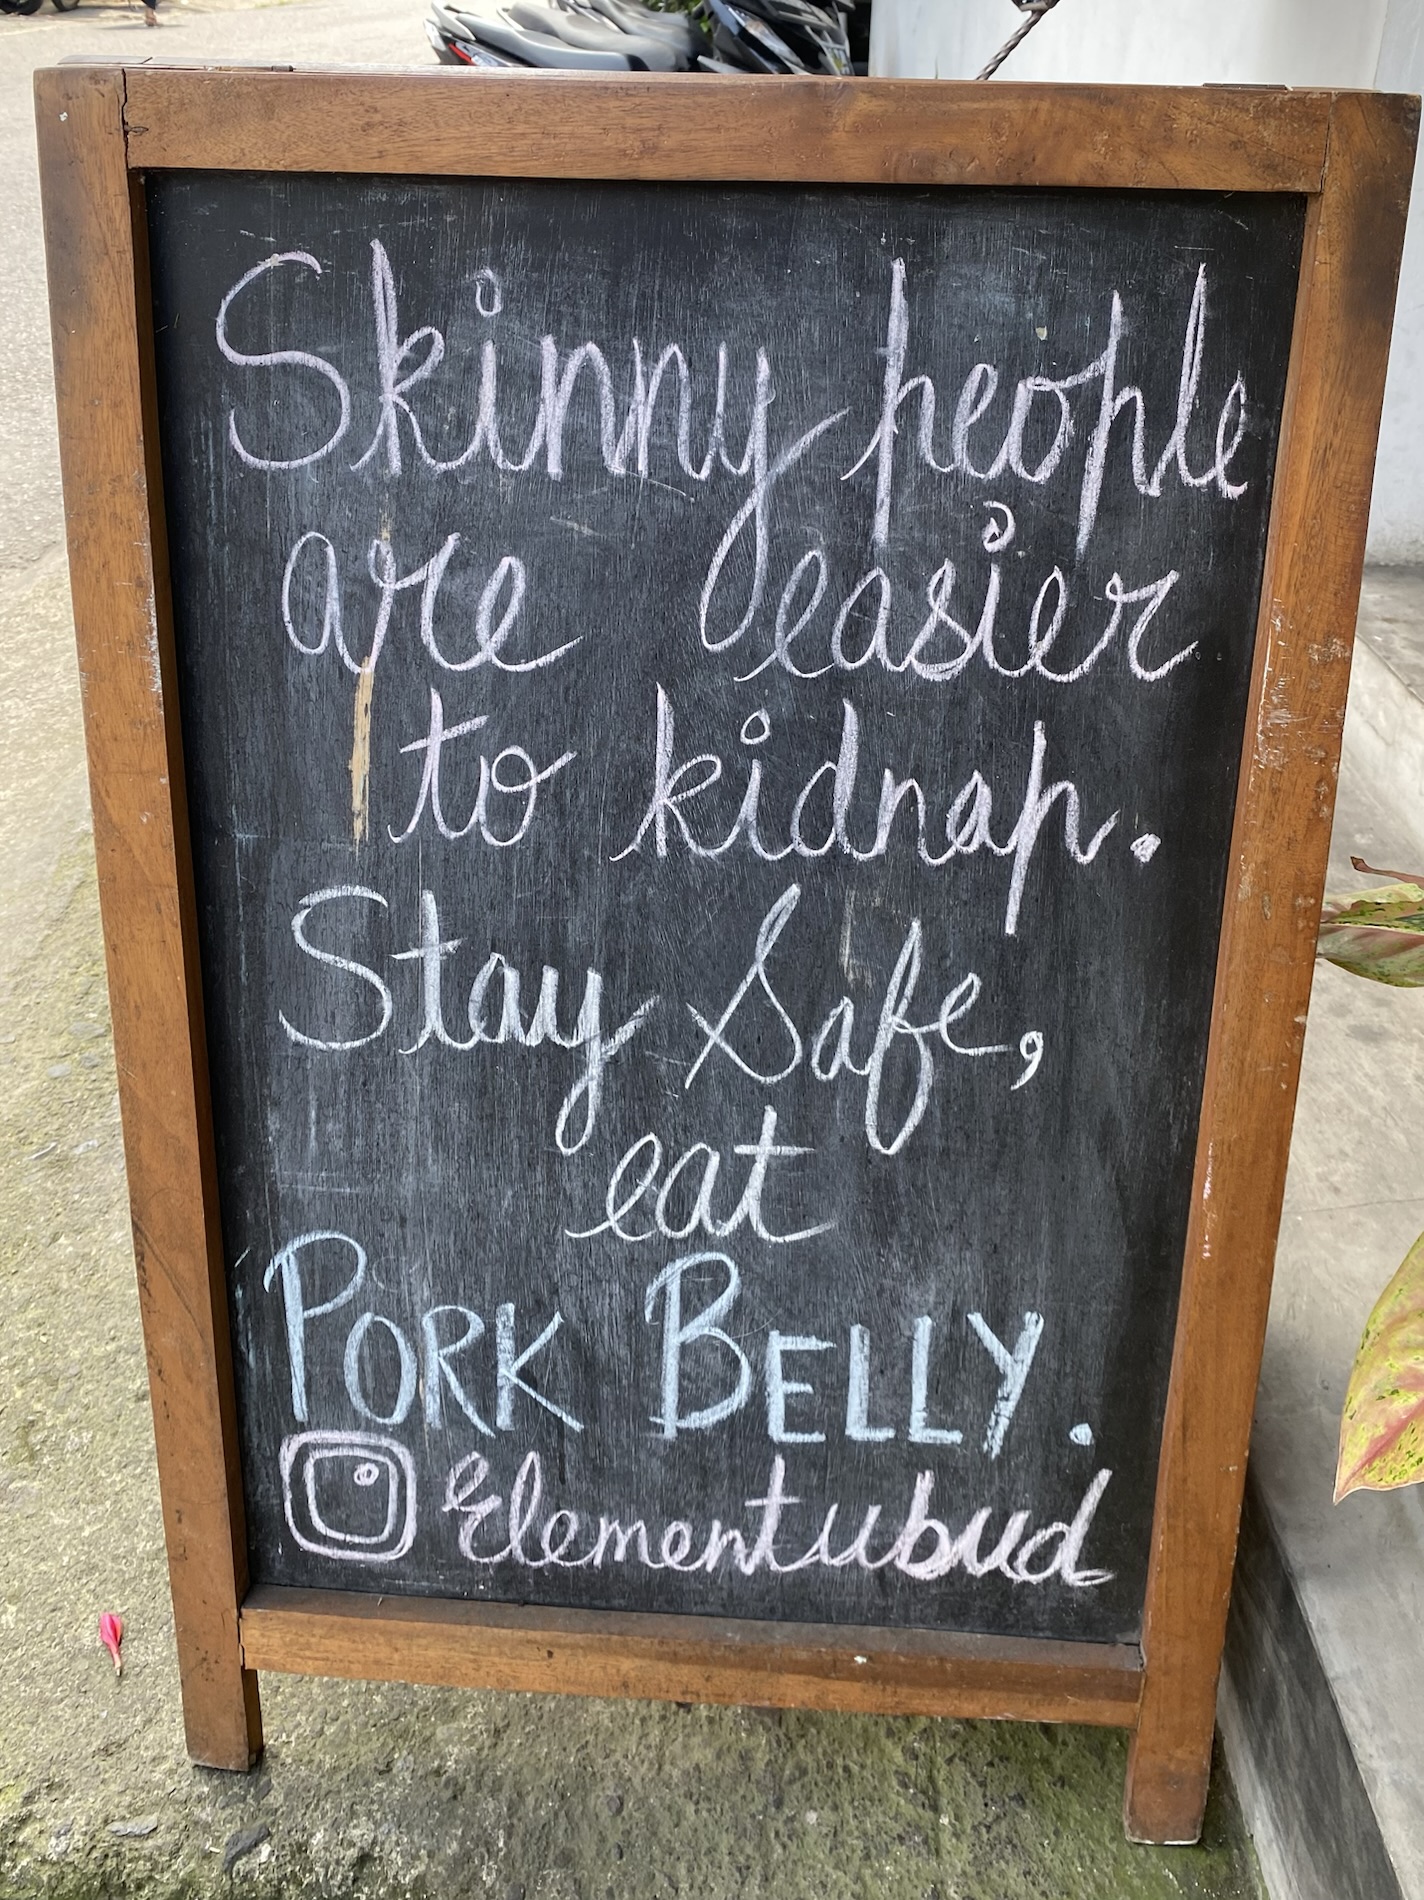 Skinny people
are easier
to kidnap.
Stay Safe,
eat
PORK BELLY.
Elementubud